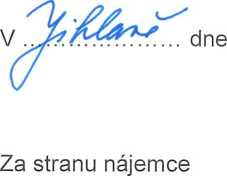 V Jihlavě dne
Za stranu nájemce